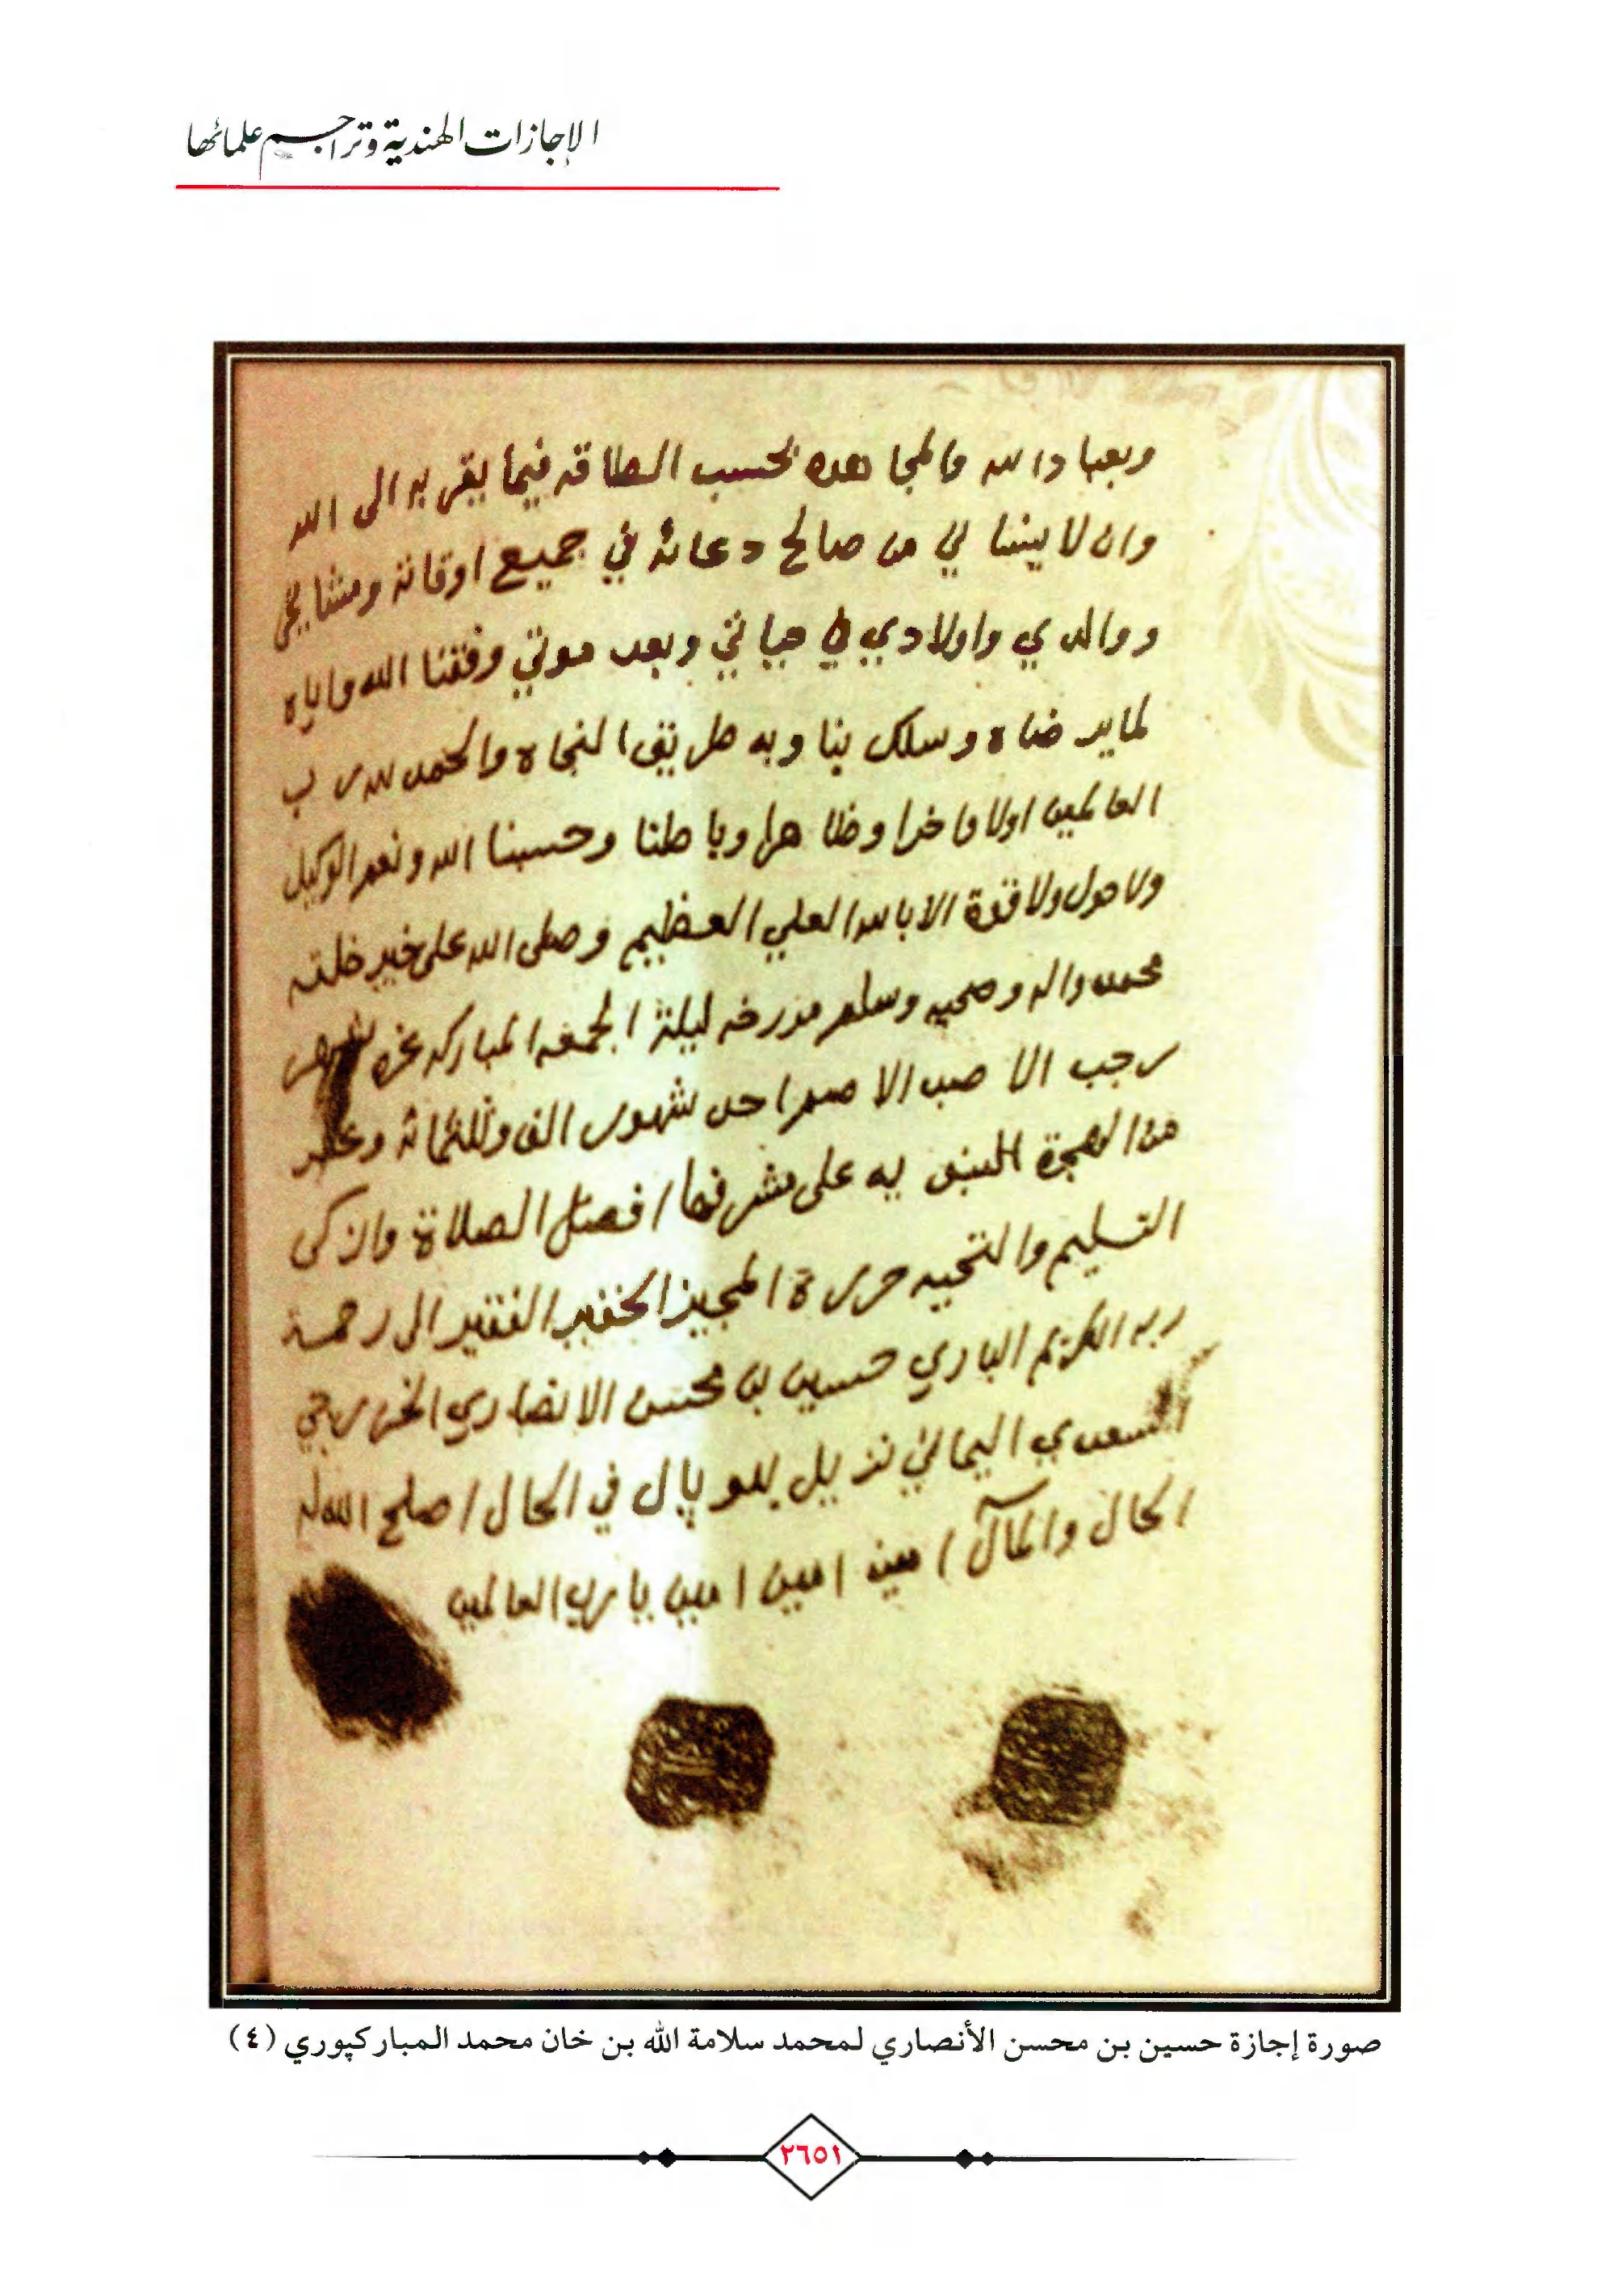 الإجازات الهندية وتراجم علمائها
وبعباد الله والمجاهده بحسب الطاقه فيما يقربه الى الله
وان لا ينسا لي من صالح دعائه في جميع اوقاته ومشايخي
ووالدي واولادي في حياتي وبعد موتي وفقنا الله واياه
لما يرضاه وسلك بنا وبه طريق النجاه والحمد لله رب
العالمين اولا واخرا وظاهرا وباطنا وحسبنا الله ونعم الوكيل
ولا حول ولا قوة الا بالله العلي العظيم وصلى الله على خير خلقه
محمد واله وصحبه وسلم مورخه ليلة الجمعه المباركه غره شهر
رجب الاصب الاصم احد شهور الف وثلثمائة وعشر
من الهجرة النبويه على مشرفها افضل الصلاة وازكى
التسليم والتحيه حرره المجيز الحقير الفقير الى رحمة
ربه الكريم الباري حسين بن محسن الانصاري الخزرجي
السعدي اليماني نزيل بهوپال في الحال اصلح الله له
الحال والمآل امين امين امين يا رب العالمين
صورة إجازة حسين بن محسن الأنصاري لمحمد سلامة الله بن خان محمد المباركپوري (٤)
٢٦٥١